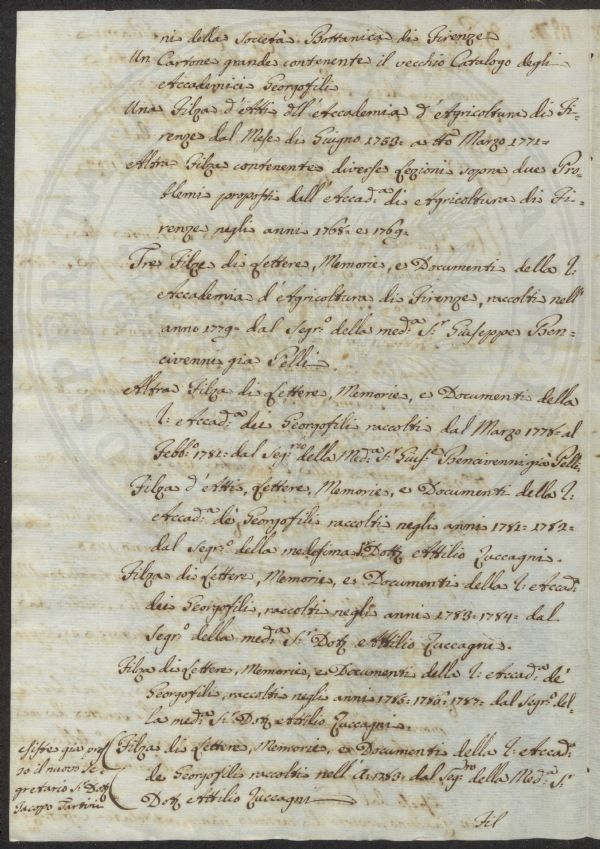 ni della Società Bottanica di Firenze
Un Cartone grande contenente il vecchio Catalogo degli
Accademici Georgofili
Una Filza d'Atti dll'Accademia d'Agricoltura di Fi-
renze dal Mese di Giugno 1753 = a tto Marzo 1771 =
Altra Filza contenente diverse Lezioni sopra due Pro
blemi proposti dall'Accad.a di Agricoltura di Fi-
renze negli anni 1768 = e 1769 =
Tre Filze di Lettere, Memorie, e Documenti della I:
Accademia d'Agricoltura di Firenze, raccolti nell'
anno 1779 = dal Segr.o della med.a S.r Giuseppe Ben-
civenni già Pelli
Altra Filza di Lettere, Memorie, e Documenti della
I: Accad.a dei Georgofili raccolti dal Marzo 1778 = al
Febb.o 1781 = dal Seg.rio della Med.a S.r Gius.e Bencivenni già Pelli
Filza d'Atti, Lettere, Memorie, e Documenti della I:
Accad.a de' Georgofili raccolti negli anni 1781 = 1782 =
dal Segr.o della medesima S.r Dott. Attilio Zuccagni.
Filza di Lettere, Memorie, e Documenti della I: Accad.a
dei Georgofili, raccolti negli anni 1783 = 1784 = dal
Segr.o della med.a S.r Dott. Attilio Zuccagni.
Filza di Lettere, Memorie, e Documenti della I: Accad.a de'
Georgofili, raccolti negli anni 1785 = 1786 = 1787 = dal Segr.o del-
la med.a S.r Dott. Attilio Zuccagni.
Filza di Lettere, Memorie, e Documenti della I: Accad.a
de Georgofili raccolti nell'A: 1783 = dal Seg.rio della Med.a S.r
Dott. Attilio Zuccagni
esiste già
zo il nuovo Se-
gretario S.r Dott.
Jacopo Tartini
Fil